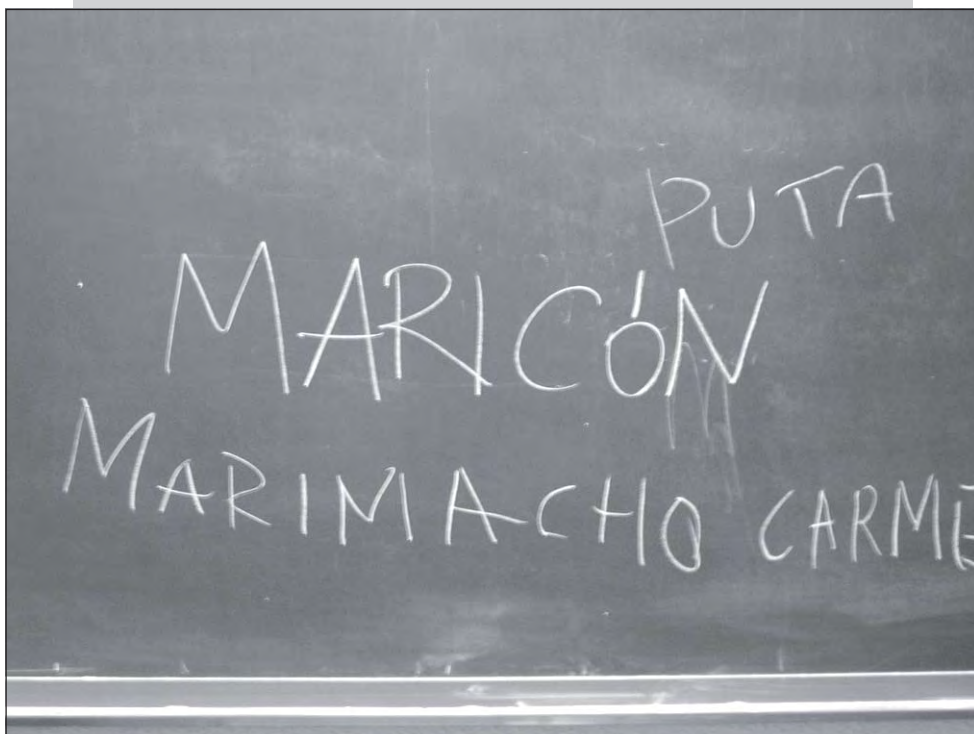 PUTA
MARICÓN
MARIMACHO CARME